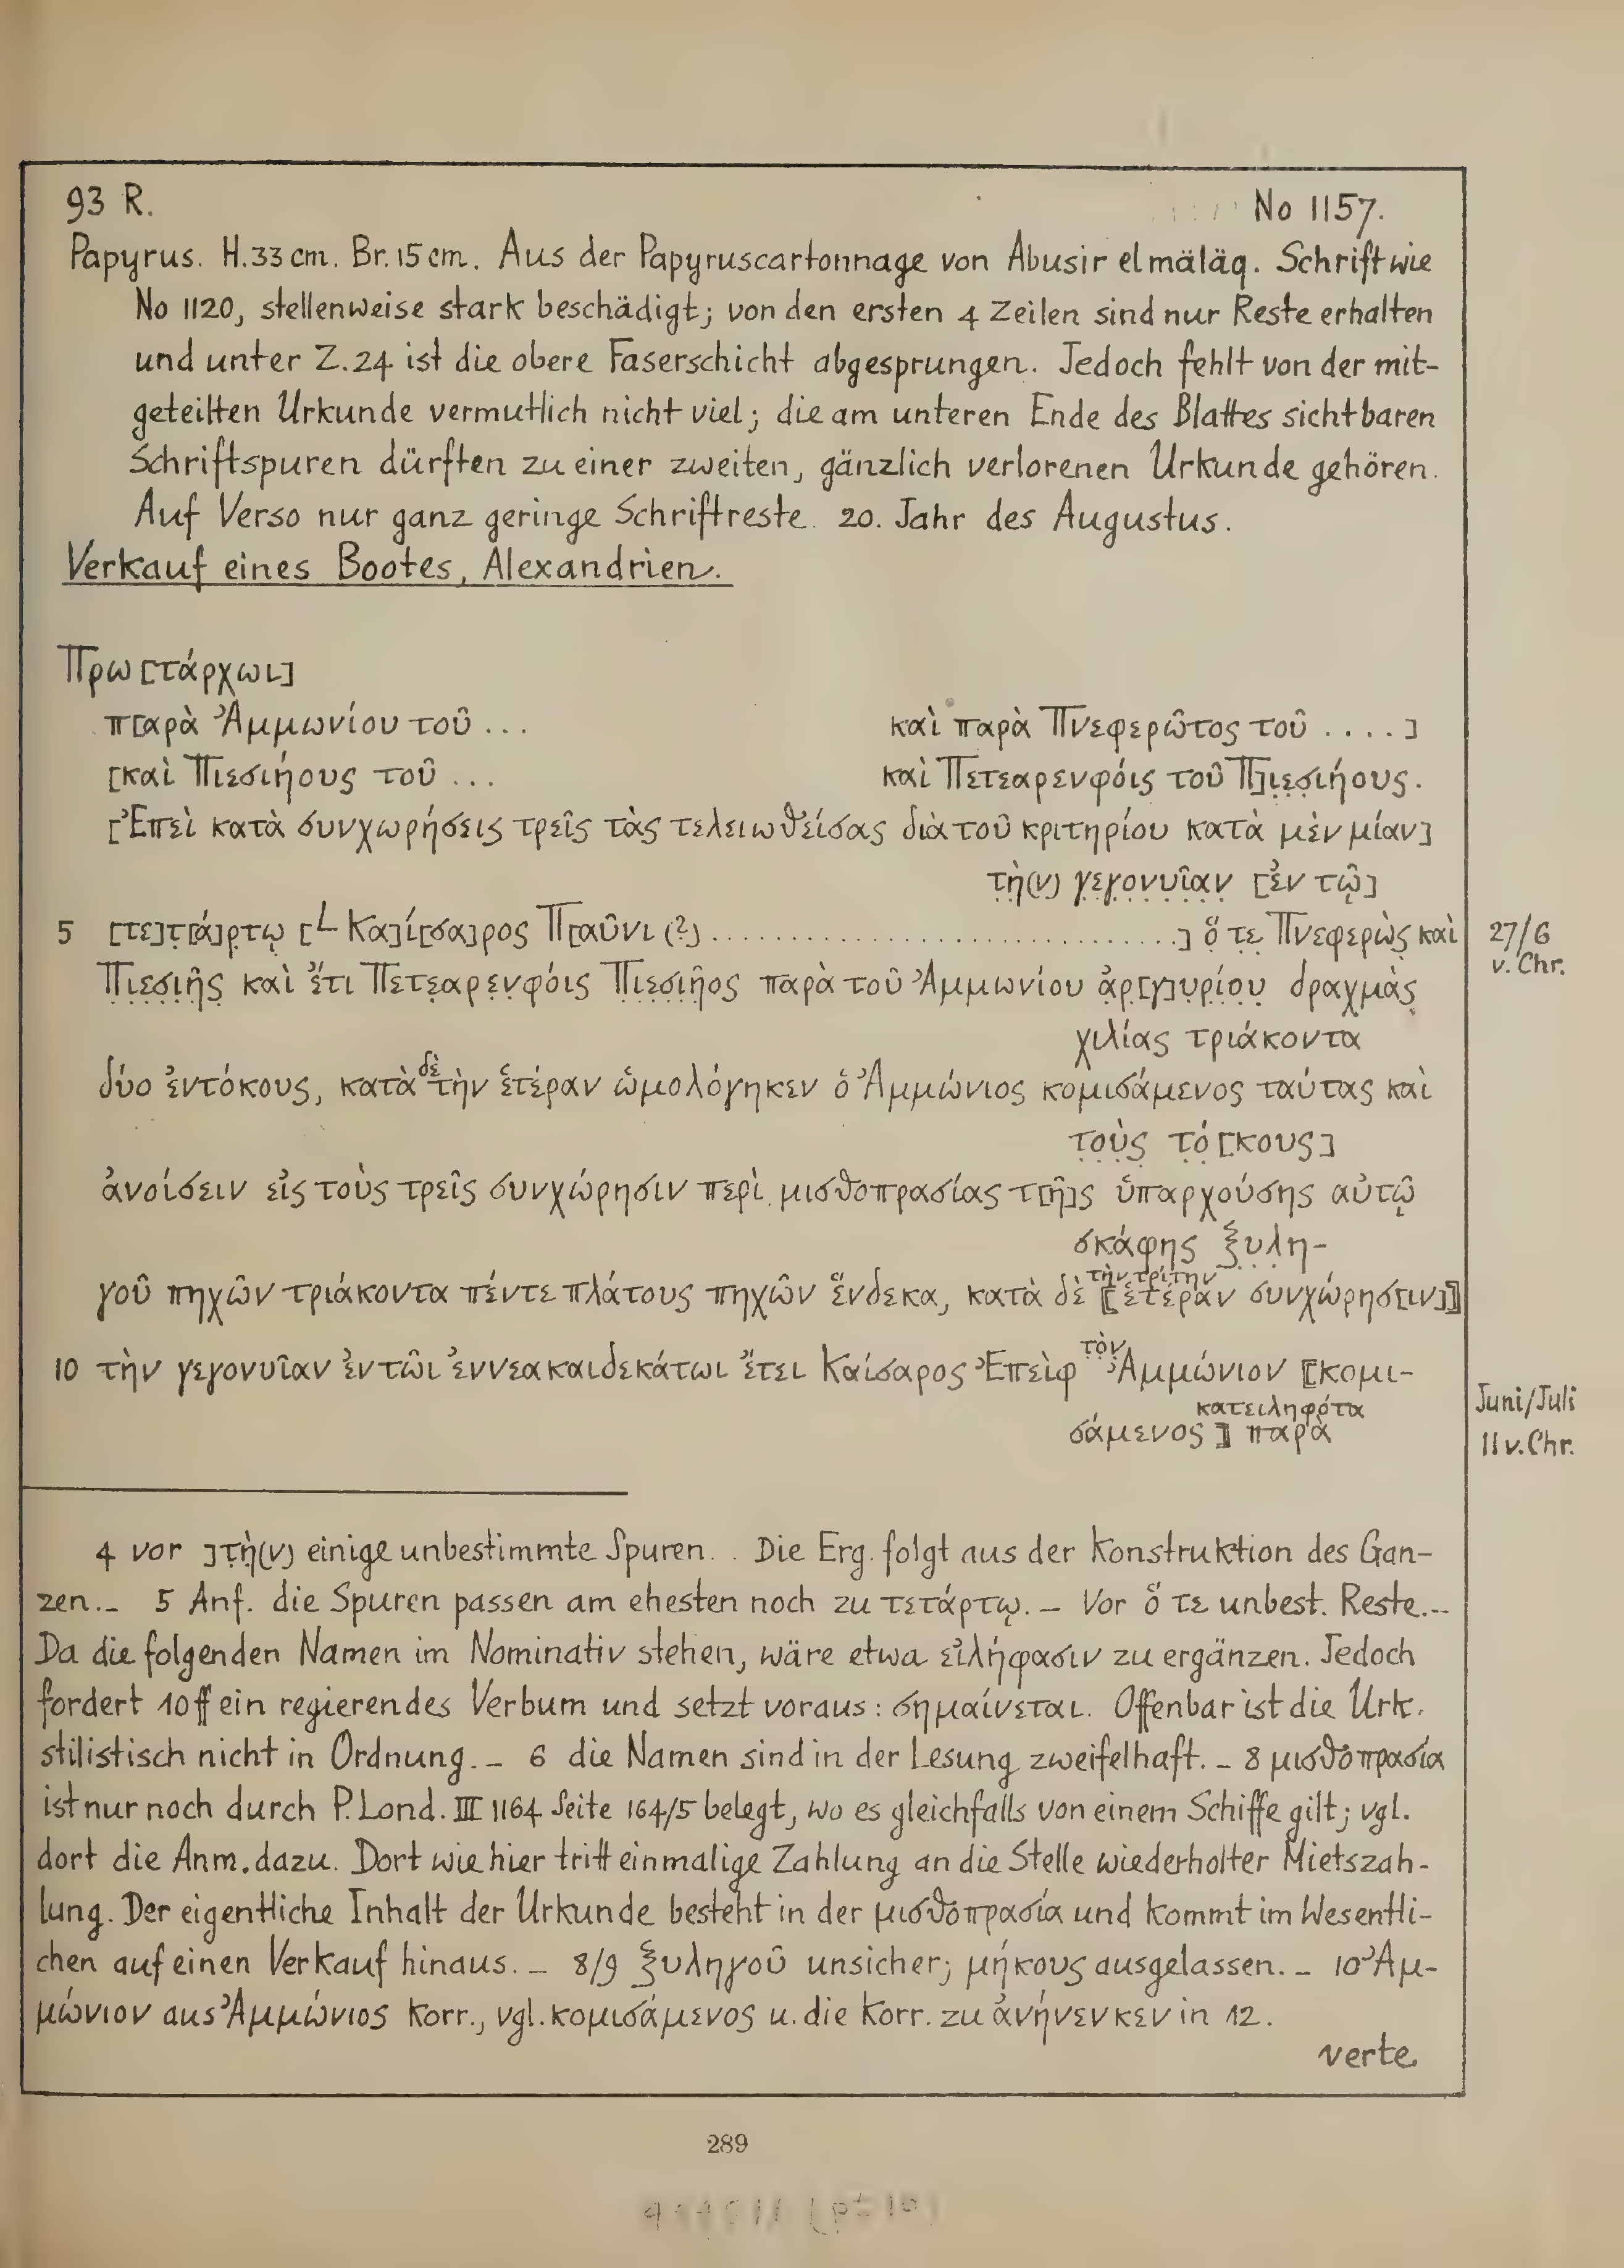 93 R. No 1157.
Papyrus. H. 33 cm. Br. 15 cm. Aus der Papyruscartonnage von Abusir elmäläq. Schrift wie
No 1120, stellenweise stark beschädigt; von den ersten 4 Zeilen sind nur Reste erhalten
und unter Z. 24 ist die obere Faserschicht abgesprungen. Jedoch fehlt von der mit-
geteilten Urkunde vermutlich nicht viel; die am unteren Ende des Blattes sichtbaren
Schriftspuren dürften zu einer zweiten, gänzlich verlorenen Urkunde gehören.
Auf Verso nur ganz geringe Schriftreste. 20. Jahr des Augustus.
Verkauf eines Bootes, Alexandrien.
Πρω[τάρχωι]
π[αρὰ Ἀμμωνίου τοῦ ... καὶ παρὰ Πνεφερῶτος τοῦ ....]
[καὶ Πιεσιήους τοῦ ... καὶ Πετεαρενφόις τοῦ Π]ι̣ε̣σ̣ιήους.
[Ἐπεὶ κατὰ συνχωρήσεις τρεῖς τὰς τελειωθείσας διὰ τοῦ κριτηρίου κατὰ μὲν μίαν]
τ̣ὴ̣(ν) γ̣ε̣γ̣ο̣ν̣υ̣ῖ̣α̣ν̣ [ἐν τῷ]
5 [τε]τ̣[ά]ρ̣τῳ [└ Κα]ί[σα]ρος Π[αῦνι (?) ..............................] ὅ τ̣ε̣ Πνεφερὼ̣ς̣ καὶ 27/6
v. Chr.
Π̣ι̣ε̣σ̣ι̣ῆ̣ς̣ καὶ ἔτι Πετε̣αρε̣ν̣φόις Π̣ι̣ε̣σ̣ι̣ῆ̣ος παρὰ τοῦ Ἀμμωνίου ἀ̣ρ̣[γ]υ̣ρ̣ί̣ο̣υ̣ δραχμὰς̣
χιλίας τριάκοντα
δύο ἐντόκους, κατὰ δὲ τὴν ἑτέραν ὡμολόγηκεν ὁ Ἀμμώνιος κομισάμενος ταύτας καὶ
τ̣ο̣ὺ̣ς̣ τ̣ό̣[κους]
ἀνοίσειν εἰς τοὺς τρεῖς συνχώρησιν περὶ μισθοπρασίας τ[ῆ]ς ὑπαρχούσης αὐτῷ
σκάφης ξ̣υ̣λ̣η-
γοῦ πηχῶν τριάκοντα πέντε πλάτους πηχῶν ἕνδεκα, κατὰ δὲ τὴν τρίτην ⟦ἑτέραν συνχώρησ[ιν]⟧
10 τὴν γεγονυῖαν ἐν τῶι ἐννεακαιδεκάτωι ἔτει Καίσαρος Ἐπεὶφ τὸν Ἀμμώνιον ⟦κομι-
Juni/Juli
κατειληφότα
σάμενος⟧ παρὰ
11 v. Chr.
4 vor ]τ̣ὴ̣(ν) einige unbestimmte Spuren. Die Erg. folgt aus der Konstruktion des Gan-
zen. – 5 Anf. die Spuren passen am ehesten noch zu τετάρτῳ. – Vor ὅ τε unbest. Reste. –
Da die folgenden Namen im Nominativ stehen, wäre etwa εἰλήφασιν zu ergänzen. Jedoch
fordert 10 ff ein regierendes Verbum und setzt voraus: σημαίνεται. Offenbar ist die Urk.
stilistisch nicht in Ordnung. – 6 die Namen sind in der Lesung zweifelhaft. – 8 μισθοπρασία
ist nur noch durch P. Lond. III 1164 Seite 164/5 belegt, wo es gleichfalls von einem Schiffe gilt; vgl.
dort die Anm. dazu. Dort wie hier tritt einmalige Zahlung an die Stelle wiederholter Mietszah-
lung. Der eigentliche Inhalt der Urkunde besteht in der μισθοπρασία und kommt im Wesentli-
chen auf einen Verkauf hinaus. – 8/9 ξυληγοῦ unsicher; μήκους ausgelassen. – 10 Ἀμ-
μώνιον aus Ἀμμώνιος korr., vgl. κομισάμενος u. die Korr. zu ἀνήνενκεν in 12.
verte
289